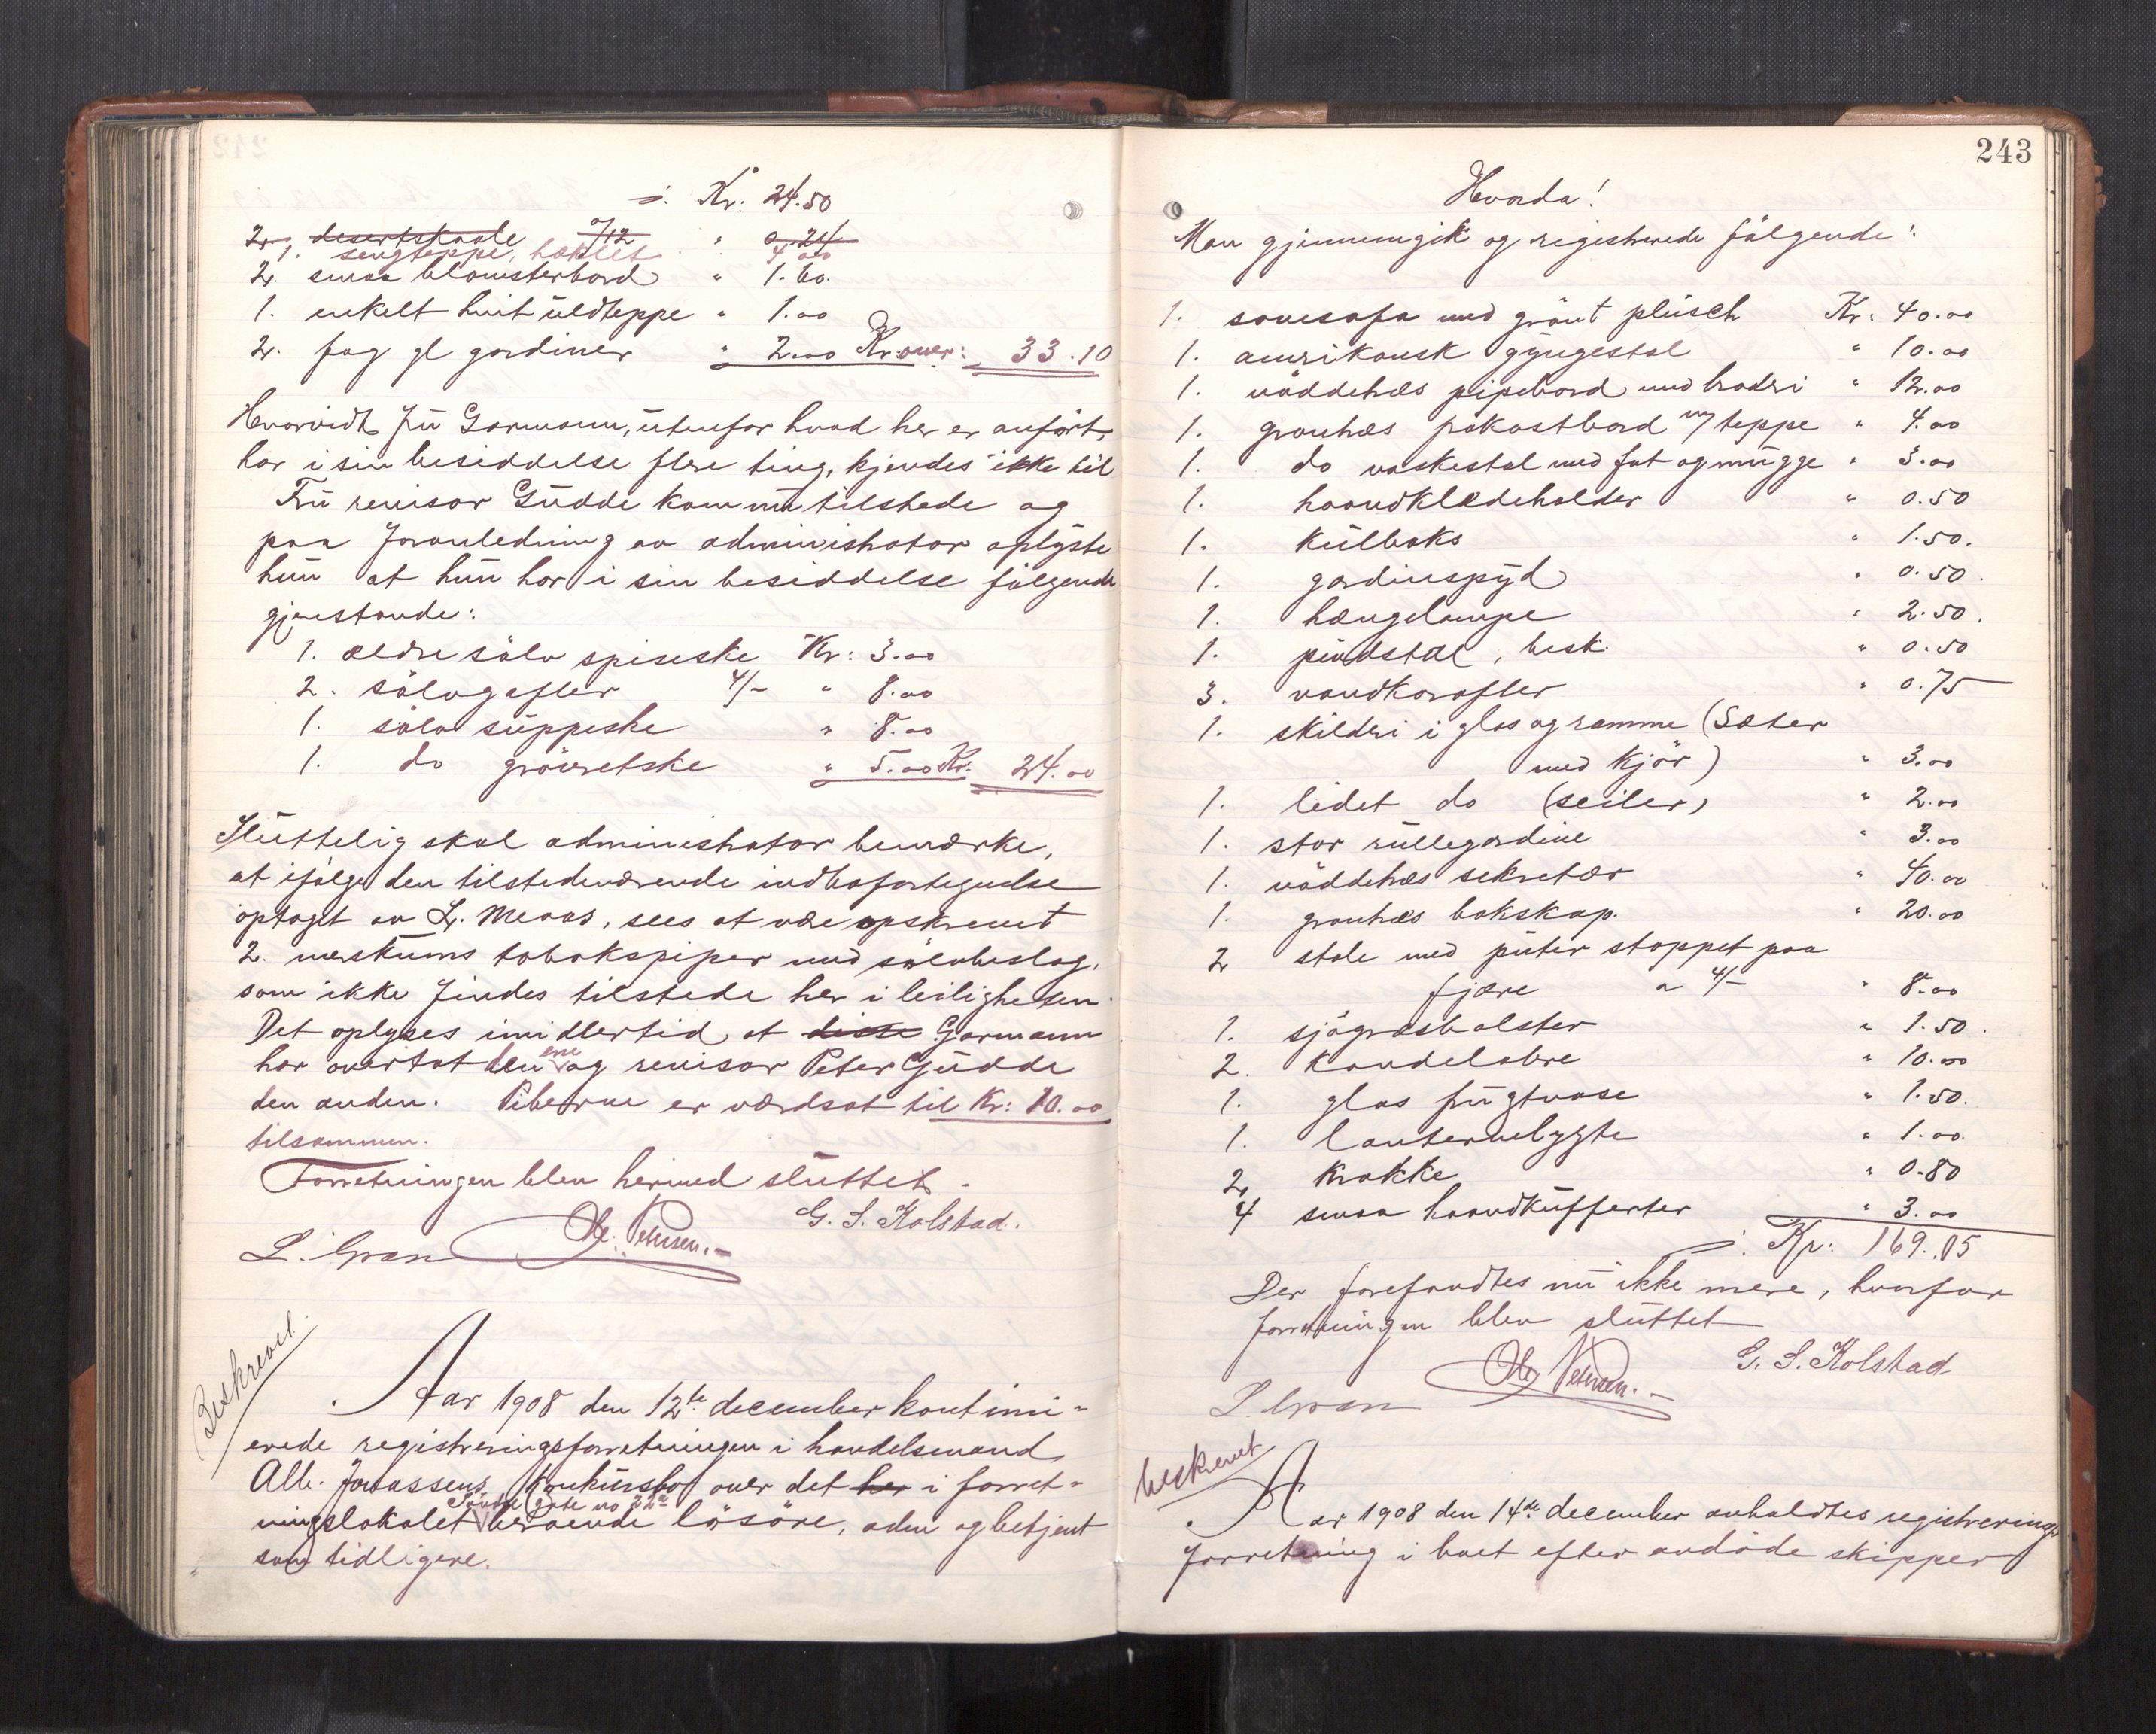 ÷. Kr: 24.50
2. desertskaale a/12 " 0.24
1. sengteppe, hæklet 4.00
2. smaa blomsterbord " 1.60.
1. enkelt hvit uldteppe " 1.00
2. fag gl gardiner " 2.00 Kroner: 33.10
Hvorvidt fru Garmann, utenfor hvad her er anført,
har i sin besiddelse flere ting, kjendes ikke til
Fru revisor Gudde kom nu tilstede og
paa foranledning av administrator oplyste
hun at hun har i sin besiddelse følgende
gjenstande:
1. ældre sølv spiseske Kr: 3.00
2. sølvgafler 4/- " 8.00
1. sølv suppeske " 8.00
1. do grøtretske " 5.00 Kr. 24.00
Sluttelig skal administrator bemærke,
at ifølge den tilstedeværende indbofortegnelse
optaget av L. Meraas, sees at være opskrevet
2. merskums tobakspiper med sølvbeslag,
som ikke findes tilstede her i leiligheten.
Det oplyses imidlertid at disse Garmann
har overtat den ene og revisor Peter Gudde
den anden. Piberne er værdsat til Kr: 10.00
tilsammen.
Forretningen blev hermed sluttet.
G. S. Kolstad.
L. Gran Ole Petersen.-
Beskrevet.
Aar 1908 den 12te december kontinu-
erede registreringsforretningen i handelsmand
Alb. Jonassens Konkursbo over det her i forret-
ningslokalet Søndre gate no 22a beroende løsøre, adm og betjent
som tidligere.
243
Hvorda!
Man gjennemgik og registrerede følgende:
1. sovesofa med grønt plüsch Kr: 40.00
1. amerikansk gyngestol " 10.00
1. nøddetræs pipebord med broderi " 12.00
1. grantræs frokostbord m/ teppe " 4.00
1. do vaskestol med fat og mugge " 3.00
1. haandklædeholder " 0.50
1. kulboks " 1.50.
1. gardinspyd " 0.50.
1. hængelampe " 2.50.
1. pindstol, besk. " 0.50
3. vandkarafler " 0.75
1. skilderi i glas og ramme (Sæter
med kjør) " 3.00
1. lidet do (seiler) " 2.00
1. stor rullegardine " 3.00
1. nøddetræs sekretær " 40.00
1. grantræs bokskap. " 20.00
2 stole med puter stoppet paa
fjære a 4/- " 8.00
1. sjøgræsbolster " 1.50.
2. kandelabre " 10.00
1. glas frugtvase " 1.50.
1. lanternelygte " 1.00.
2 krakke " 0.80
4 smaa haandkufferter " 3.00
÷. Kr: 169.05
Der forefandtes nu ikke mere, hvorfor
forretningen blev sluttet
G. S. Kolstad
L. Gran Ole Petersen.-
beskrevet
Aar 1908 den 14de december avholdtes registrerings
forretning i boet efter avdøde skipper